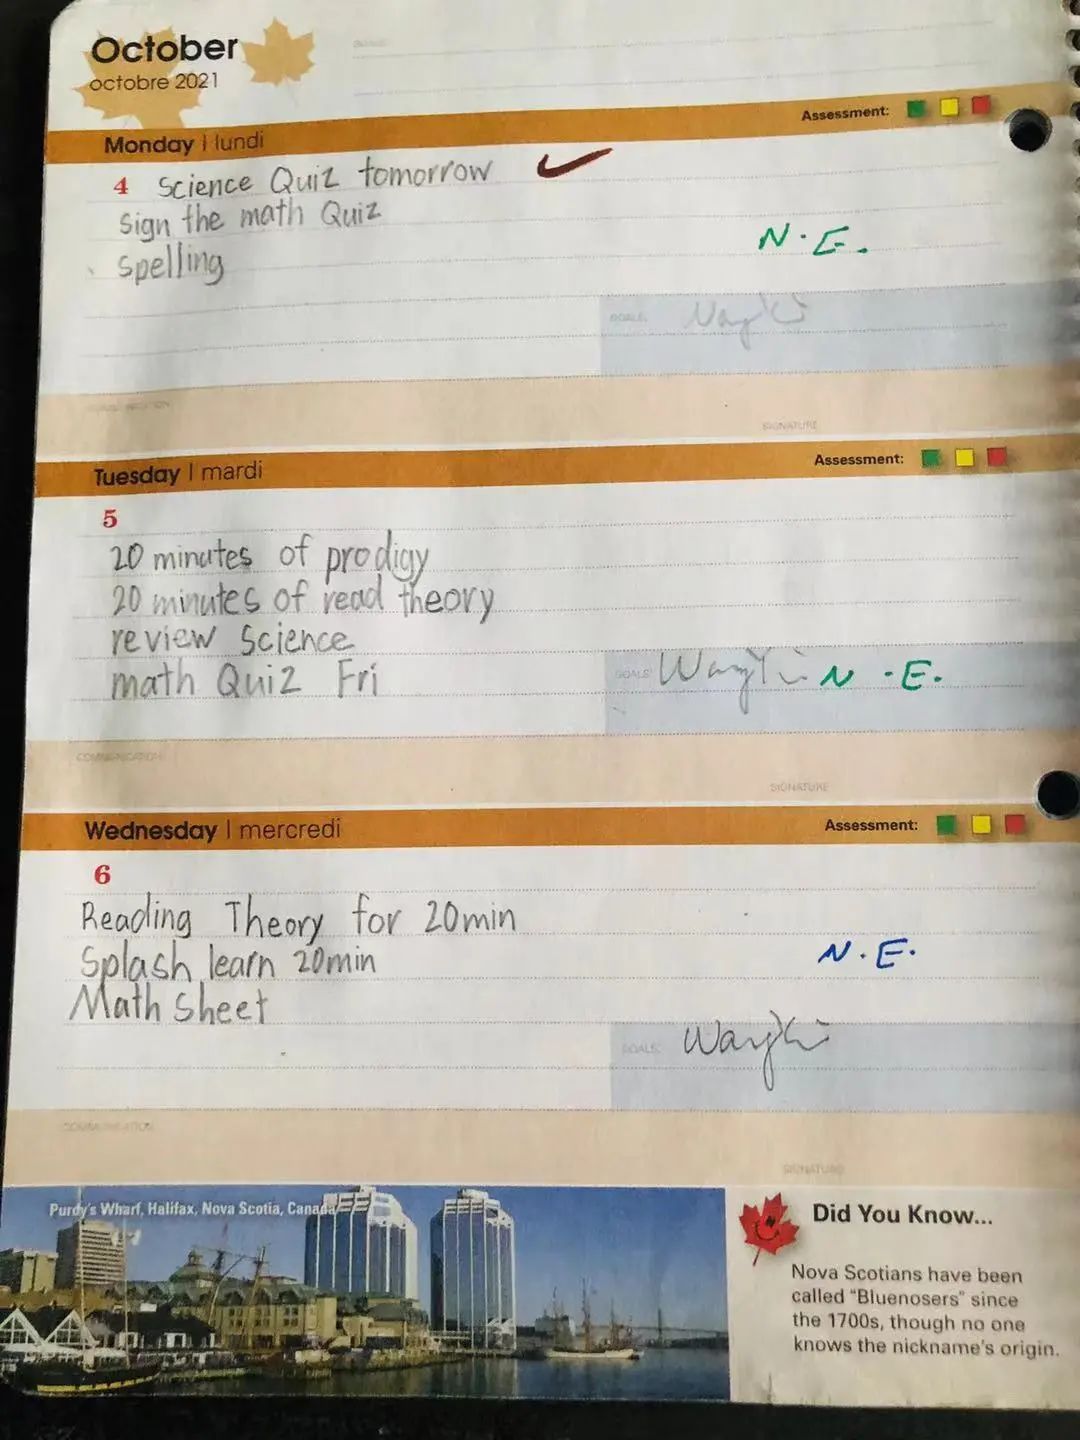 October
octobre 2021
Assessment:
Monday | lundi
4 Science Quiz tomorrow
Sign the math Quiz
Spelling
N.E.
GOALS:
SIGNATURE
Tuesday | mardi
Assessment:
5
20 minutes of prodigy
20 minutes of read theory
review Science
math Quiz Fri
GOALS:
N.E.
COMMUNICATION
SIGNATURE
Wednesday | mercredi
Assessment:
6
Reading Theory for 20min
Splash learn 20min
Math Sheet
N.E.
GOALS:
COMMUNICATION
SIGNATURE
Purdy's Wharf, Halifax, Nova Scotia, Canada
Did You Know...
Nova Scotians have been
called "Bluenosers" since
the 1700s, though no one
knows the nickname's origin.